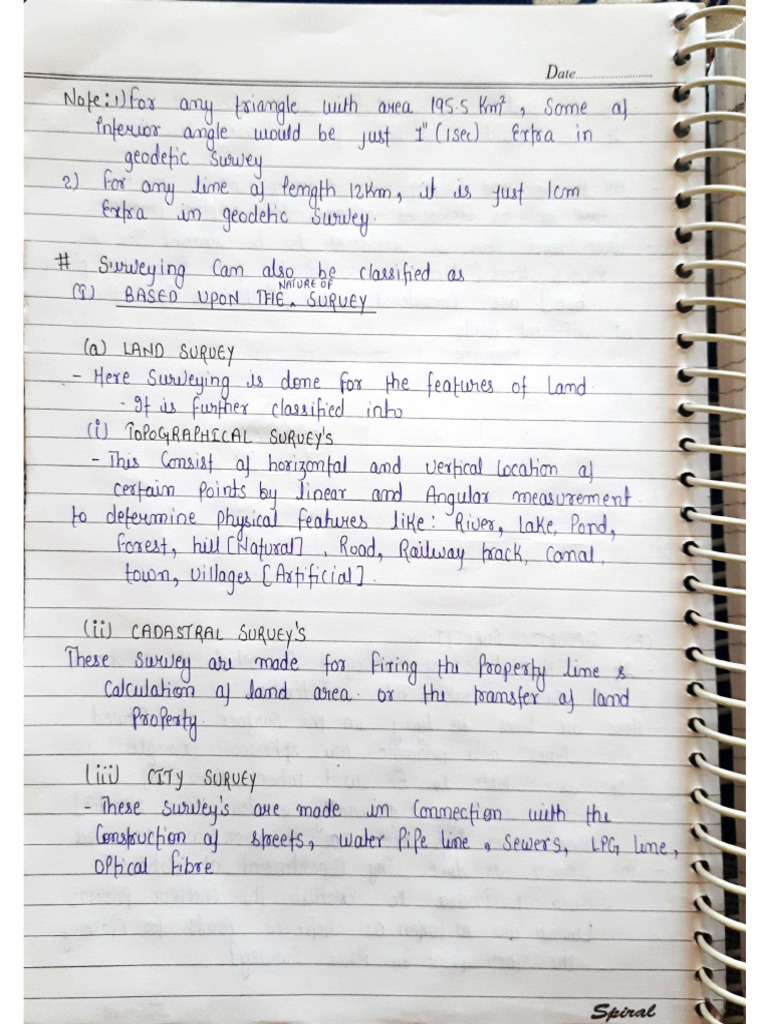 Date
Note: 1) For any triangle with area 195.5 Km², Some of
inferior angle would be just 1" (1sec) Extra in
geodetic Survey
2) For any line of length 12Km, it is just 1cm
Extra in geodetic Survey.
# Surveying Can also be classified as
NATURE OF
(1) BASED UPON THE ^ SURVEY
(a) LAND SURVEY
- Here Surveying is done for the features of Land.
- It is further classified into
(i) TOPOGRAPHICAL SURVEY'S
- This Consist of horizontal and vertical Location of
certain Points by linear and Angular measurement
to determine Physical features like: River, Lake, Pond,
Forest, hill [Natural], Road, Railway track, Canal,
town, villages [Artificial].
(ii) CADASTRAL SURVEY'S
These Survey are made for Firing the Property line &
Calculation of land area or the transfer of land
Property
(iii) CITY SURVEY
- These Survey's are made in Connection with the
Construction of streets, water Pipe line, Sewers, LPG line,
Optical fibre
Spiral